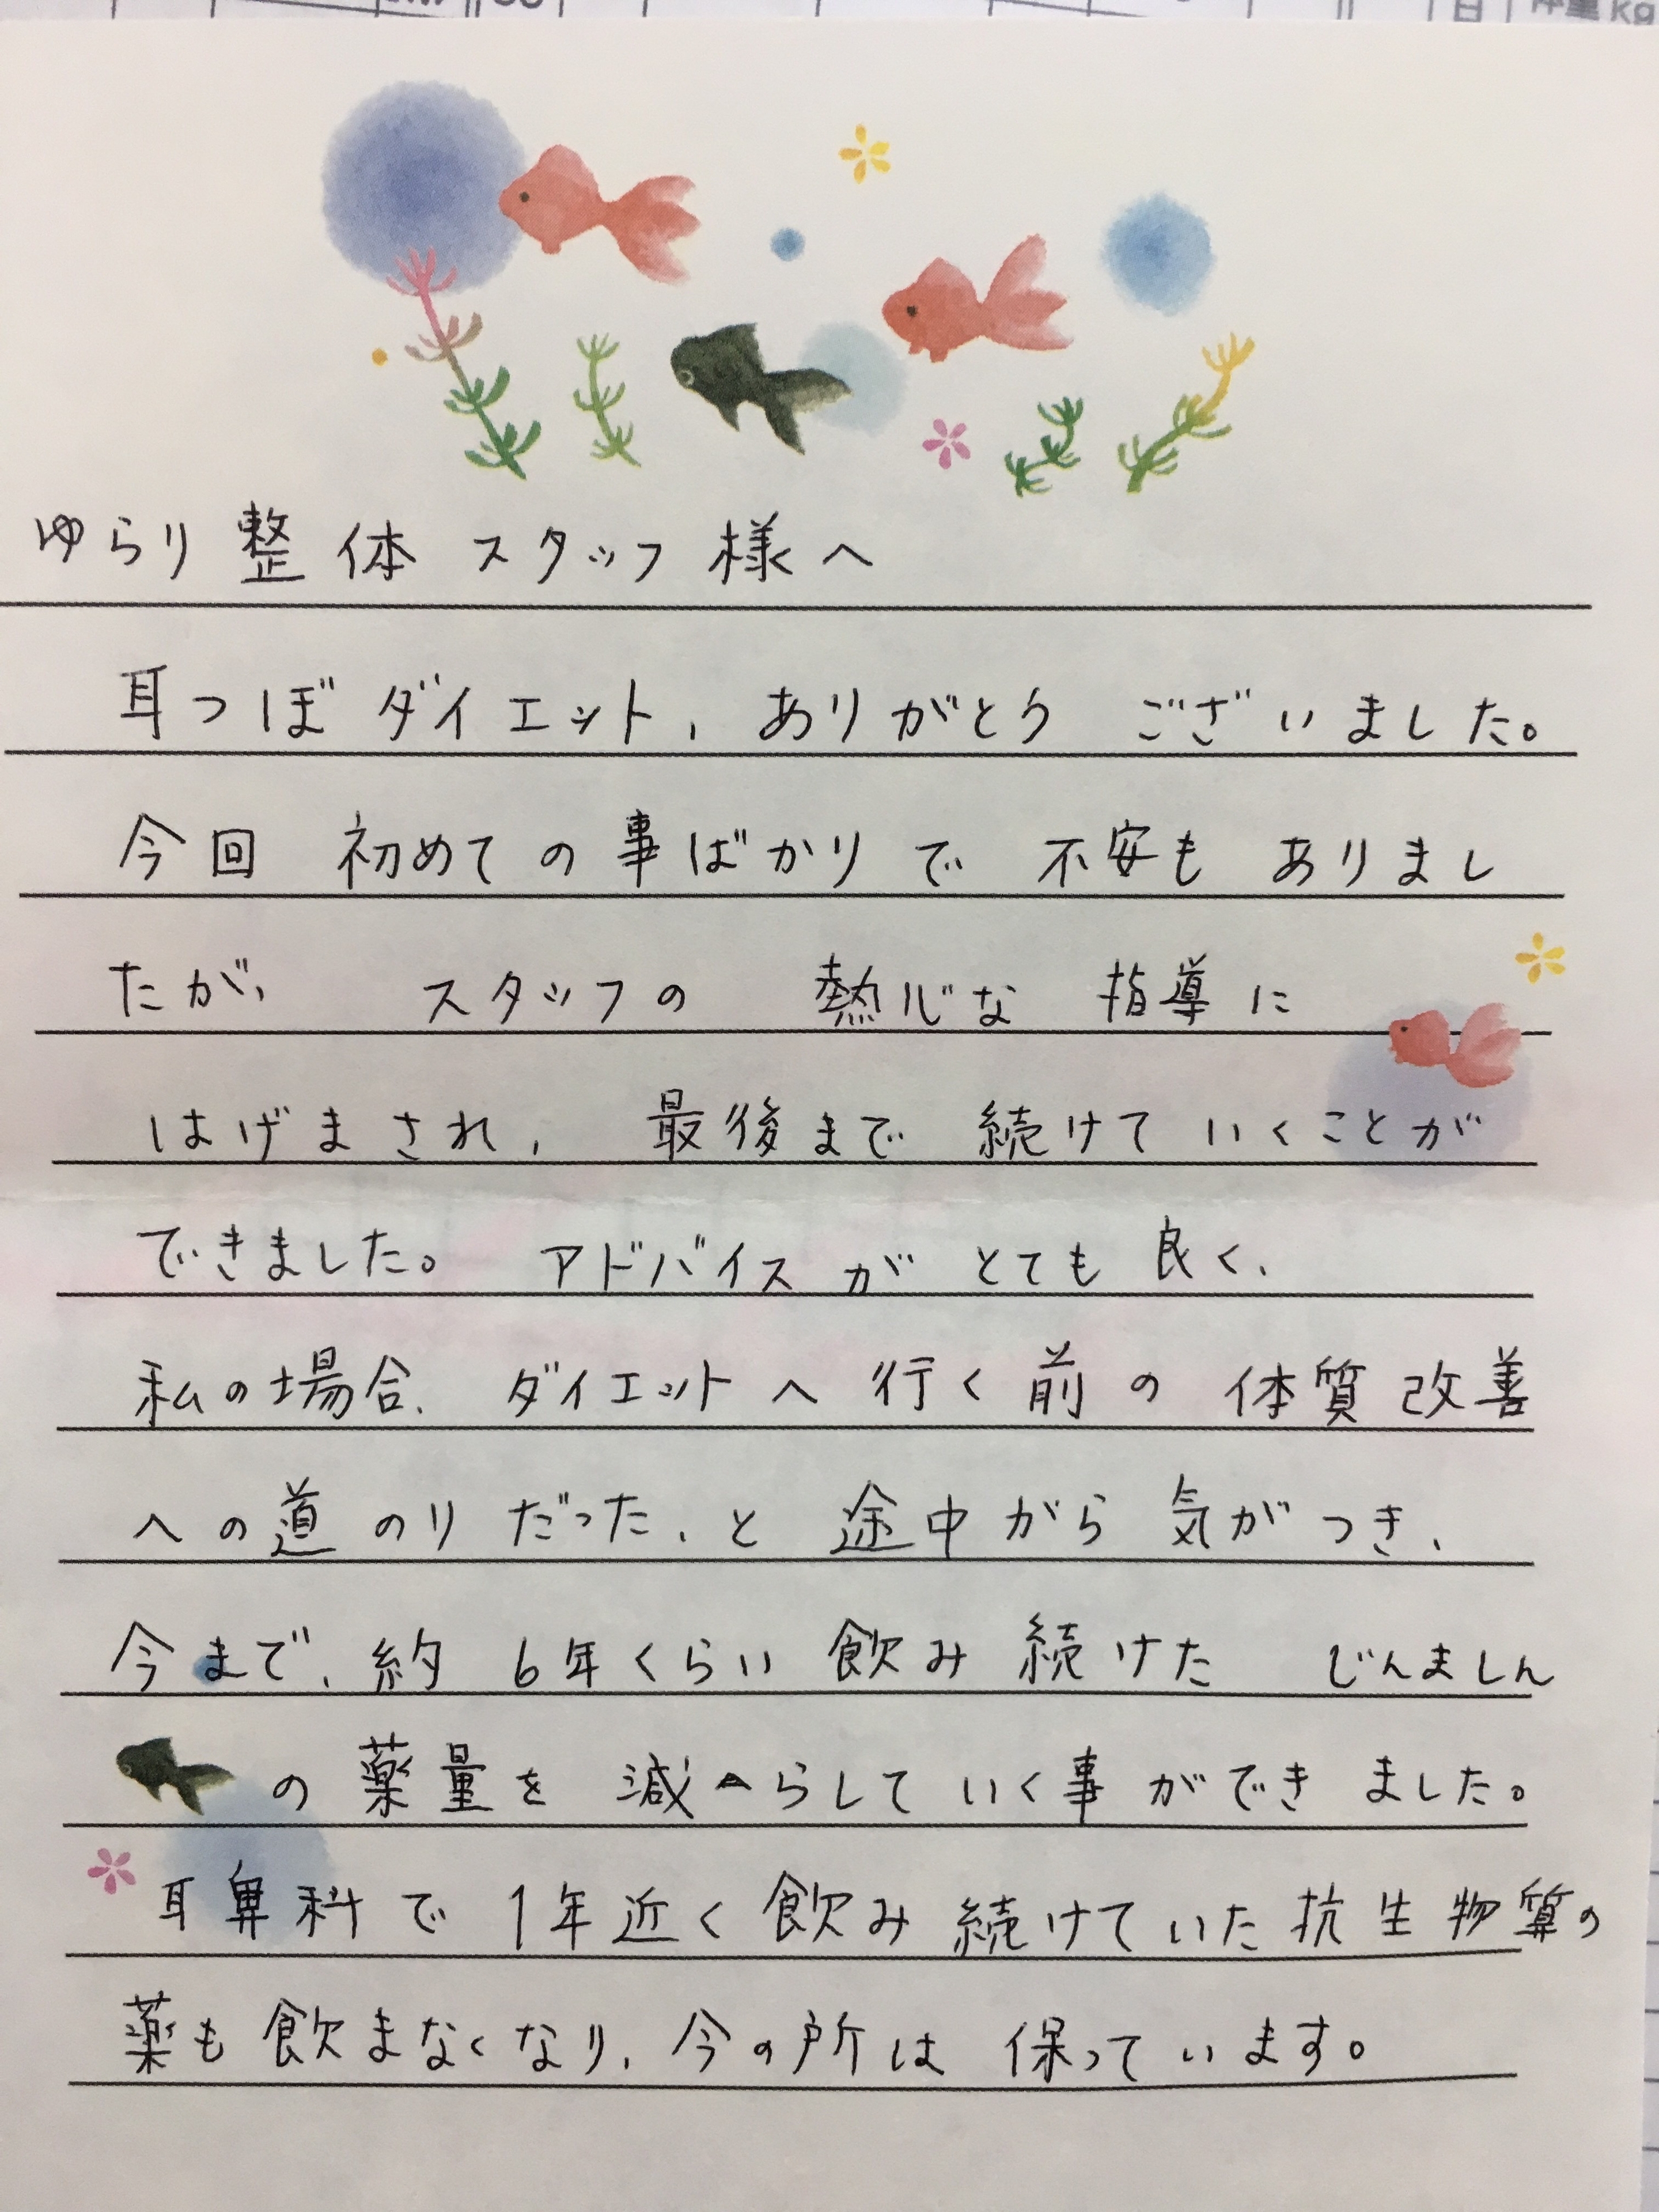 日 体重kg
ゆらり整体スタッフ様へ
耳つぼダイエット、ありがとうございました。
今回 初めての事ばかりで 不安も ありまし
たが、 スタッフの 熱心な 指導に
はげまされ、 最後まで 続けて いくことが
できました。 アドバイスが とても 良く、
私の場合、ダイエットへ行く前の 体質改善
への道のりだった、と 途中から 気がつき、
今まで、約6年くらい飲み続けた じんましん
の薬量を 減らして いく事ができました。
耳鼻科で1年近く飲み続けていた抗生物質の
薬も飲まなくなり、今の所は 保っています。